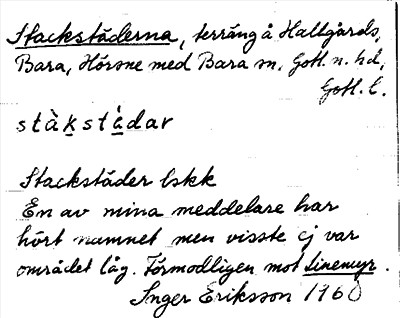 Stackstäderna, terräng å Hallgårds,
Bara, Hörsne med Bara sn, Gotl. n. hd,
Gotl. l.
stàkstàdar
Stackstäder lskk
En av mina meddelare har
hört namnet men visste ej var
området låg. Förmodligen mot Linemyr.
Inger Eriksson 1960